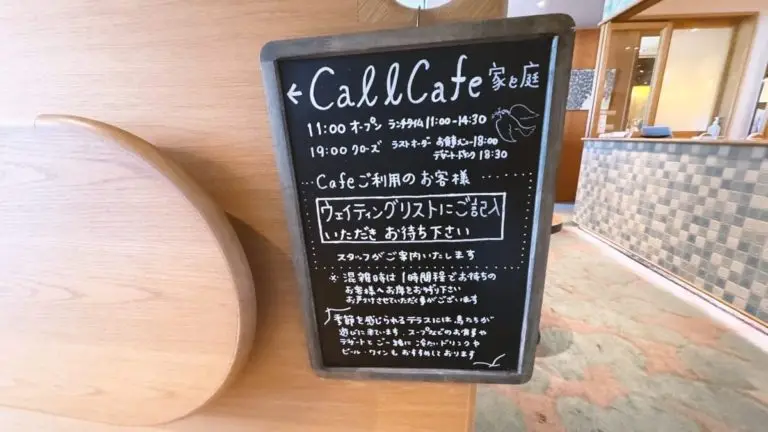 ← Call Cafe 家と庭
11:00 オープン ランチタイム 11:00-14:30
19:00 クローズ ラストオーダー お食事メニュー 18:00
デザート・ドリンク 18:30
Cafeご利用のお客様
ウェイティングリストにご記入
いただき お待ち下さい
スタッフがご案内いたします
※ 混雑時は1時間程でお待ちの
お客様へお席をお譲り下さい
お声がけさせていただく事がございます
季節を感じられるテラスには、鳥たちが
遊びに来ています。スープなどのお食事や
デザートとご一緒に 冷たいドリンクや
ビール・ワインも おすすめしております